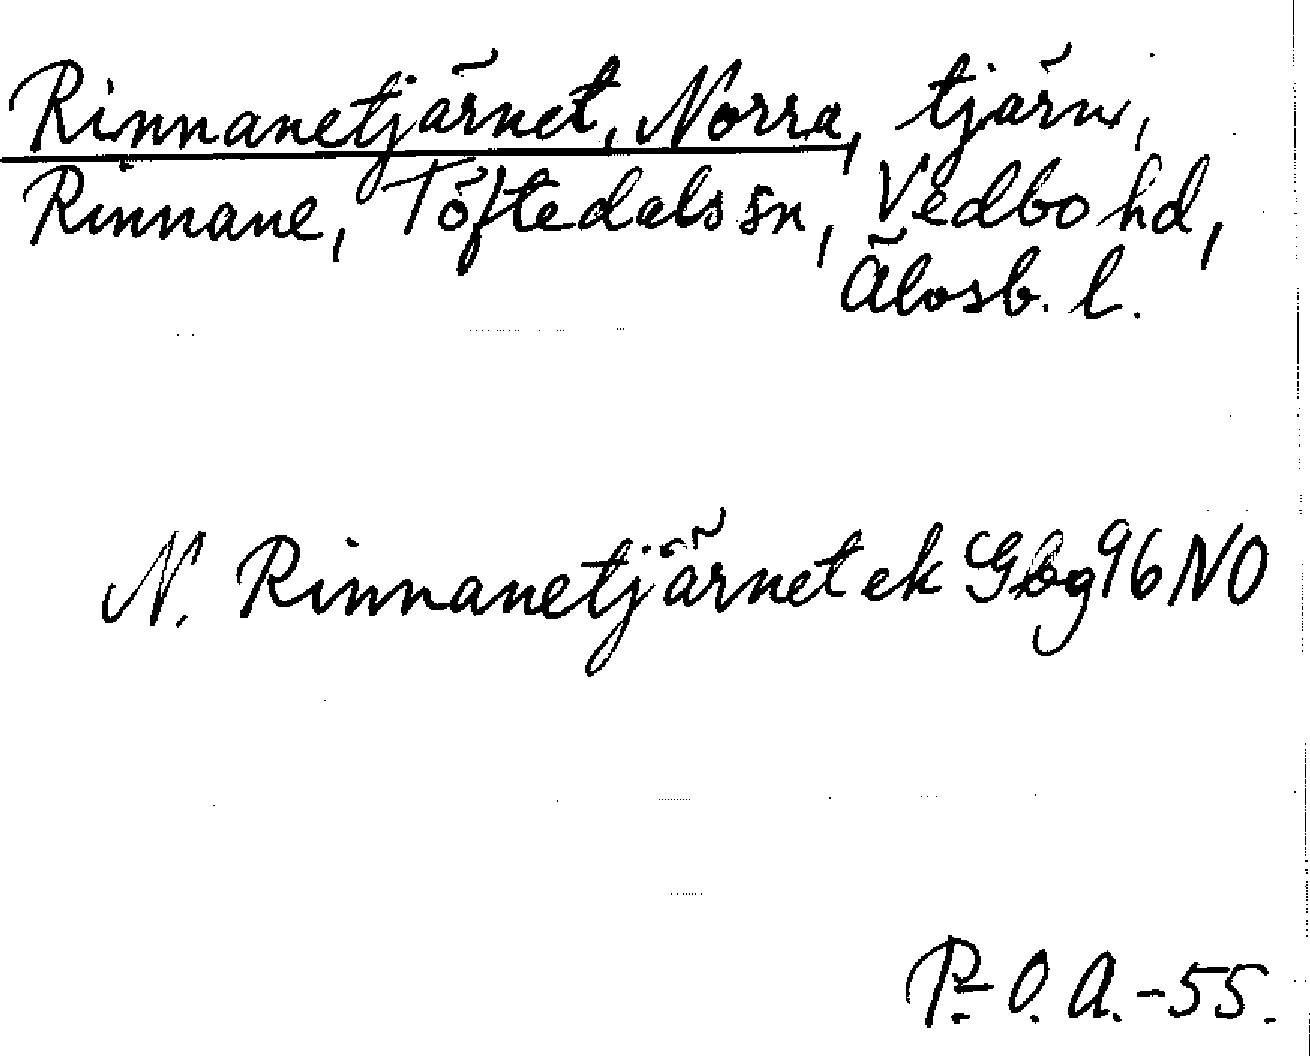 Rinnanetjärnet, Norra, tjärn,
Rinnane, Töftedals sn, Vedbo hd,
Älvsb. l.
N. Rinnanetjärnet ek Gbg 96 NO
P-O. A. -55.